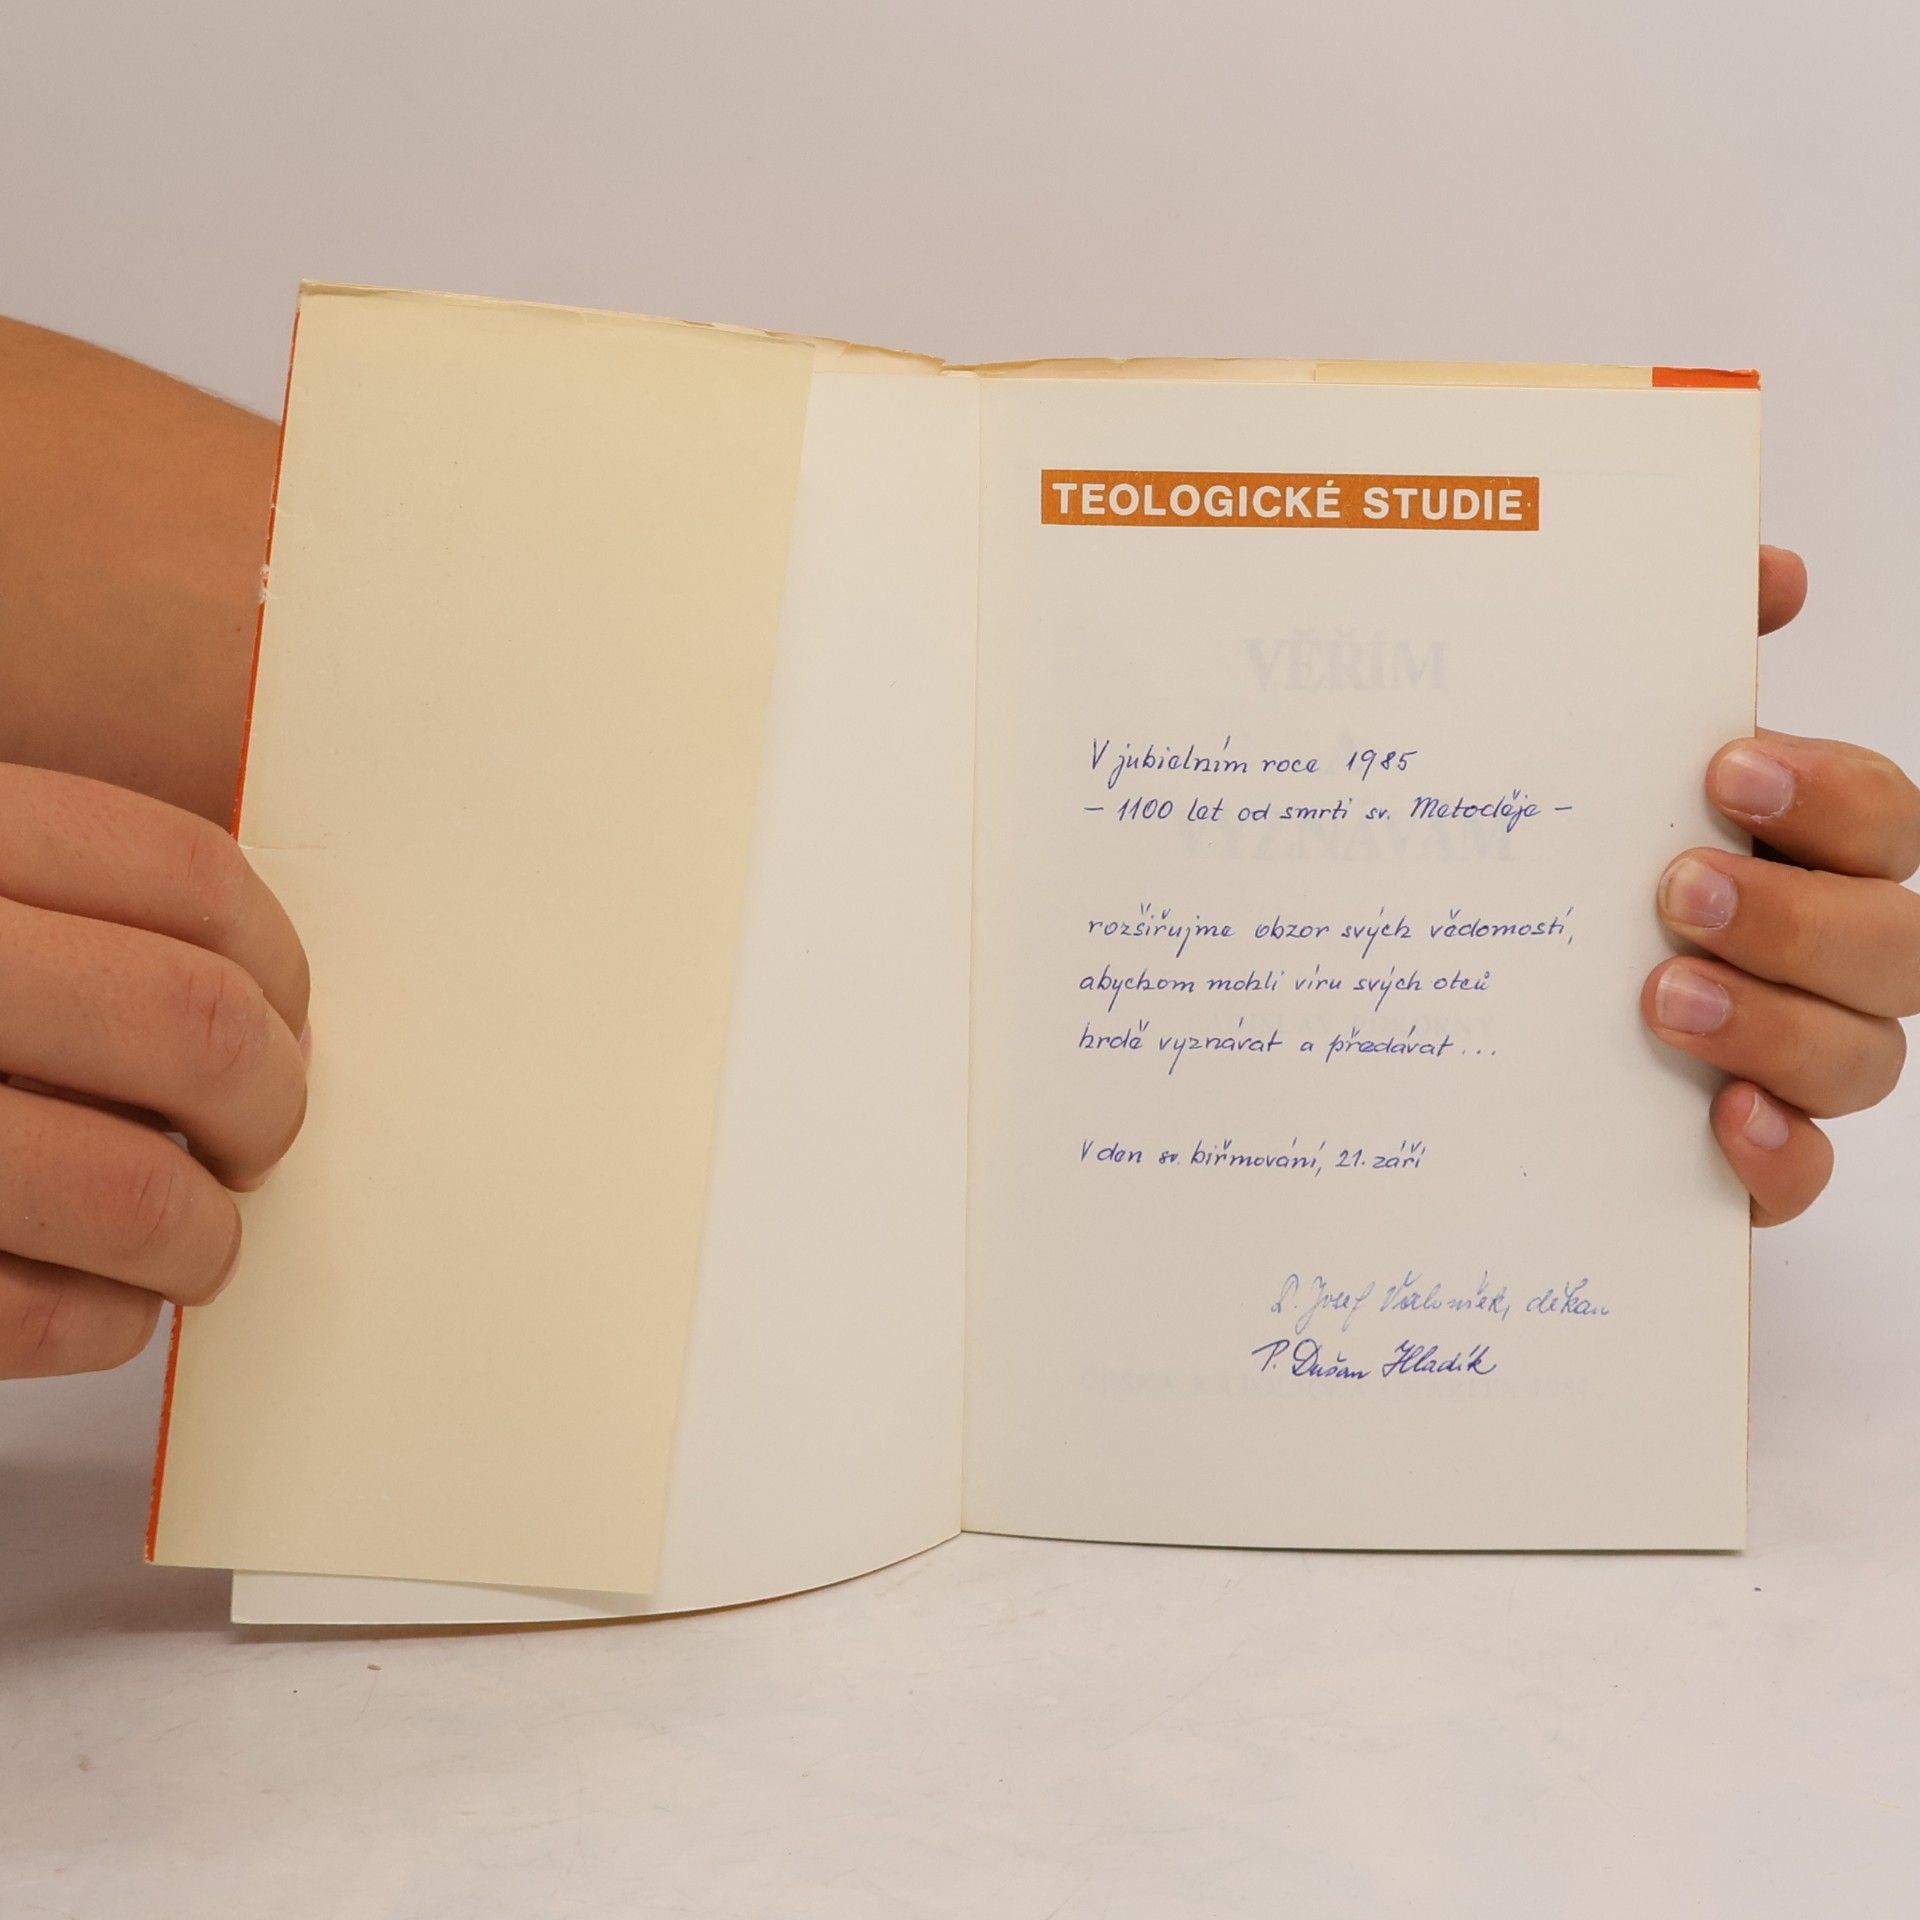 TEOLOGICKÉ STUDIE
VĚŘÍM
A
VYZNÁVÁM
V jubielním roce 1985
– 1100 let od smrti sv. Metoděje –
rozšiřujme obzor svých vědomostí,
abychom mohli víru svých otců
hrdě vyznávat a předávat...
V den sv. biřmování, 21. září
P. Josef děkan
P. Dušan Hladík